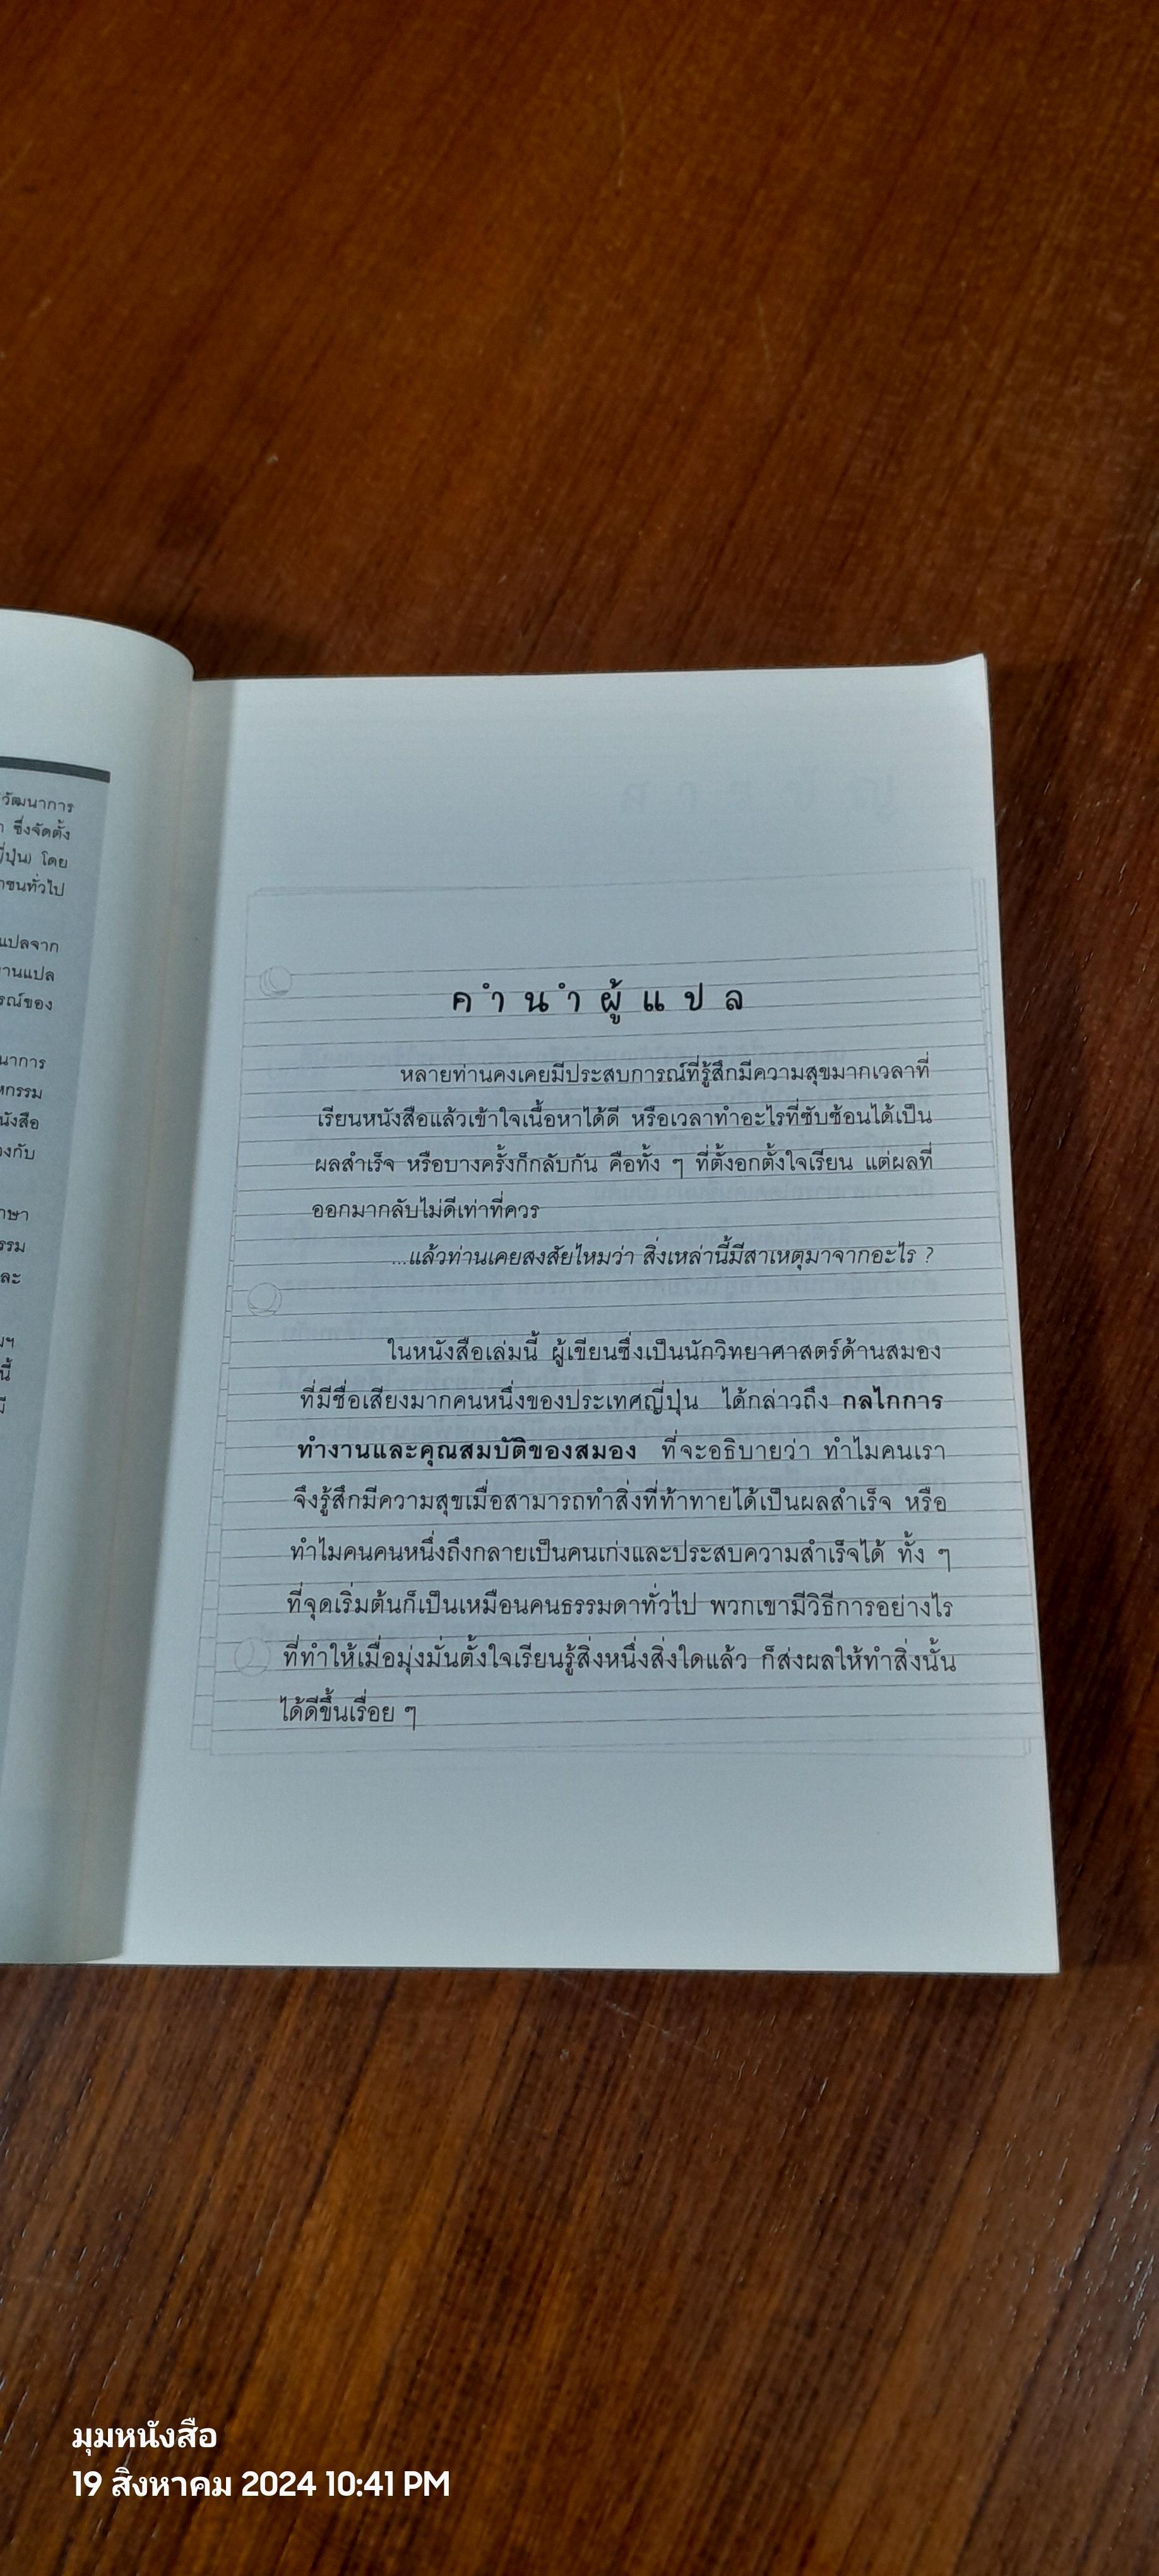 วัฒนาการ
ซึ่งจัดตั้ง
โดย
ทั่วไป
แปลจาก
านแปล
ของ
นาการ
กรรม
นังสือ
กับ
ษา
รรม
ละ
นี้
มี
คำนำผู้แปล
หลายท่านคงเคยมีประสบการณ์ที่รู้สึกมีความสุขมากเวลาที่
เรียนหนังสือแล้วเข้าใจเนื้อหาได้ดี หรือเวลาทำอะไรที่ซับซ้อนได้เป็น
ผลสำเร็จ หรือบางครั้งก็กลับกัน คือทั้ง ๆ ที่ตั้งอกตั้งใจเรียน แต่ผลที่
ออกมากลับไม่ดีเท่าที่ควร
...แล้วท่านเคยสงสัยไหมว่า สิ่งเหล่านี้มีสาเหตุมาจากอะไร ?
ในหนังสือเล่มนี้ ผู้เขียนซึ่งเป็นนักวิทยาศาสตร์ด้านสมอง
ที่มีชื่อเสียงมากคนหนึ่งของประเทศญี่ปุ่น ได้กล่าวถึง กลไกการ
ทำงานและคุณสมบัติของสมอง ที่จะอธิบายว่า ทำไมคนเรา
จึงรู้สึกมีความสุขเมื่อสามารถทำสิ่งที่ท้าทายได้เป็นผลสำเร็จ หรือ
ทำไมคนคนหนึ่งถึงกลายเป็นคนเก่งและประสบความสำเร็จได้ ทั้ง ๆ
ที่จุดเริ่มต้นก็เป็นเหมือนคนธรรมดาทั่วไป พวกเขามีวิธีการอย่างไร
ที่ทำให้เมื่อมุ่งมั่นตั้งใจเรียนรู้สิ่งหนึ่งสิ่งใดแล้ว ก็ส่งผลให้ทำสิ่งนั้น
ได้ดีขึ้นเรื่อย ๆ
มุมหนังสือ
19 สิงหาคม 2024 10:41 PM